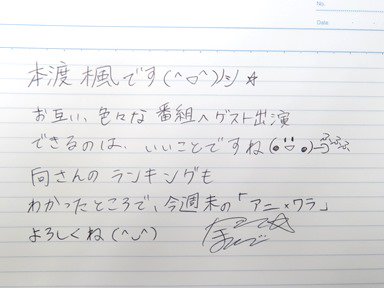 No.
Date
本渡 楓です(^▽^)ﾉシ☆
お互い、色々な番組へゲスト出演
できるのは、いいことですね
向さんのランキングも
わかったところで、今週末の「アニ×ワラ」
よろしくね(^◡^)